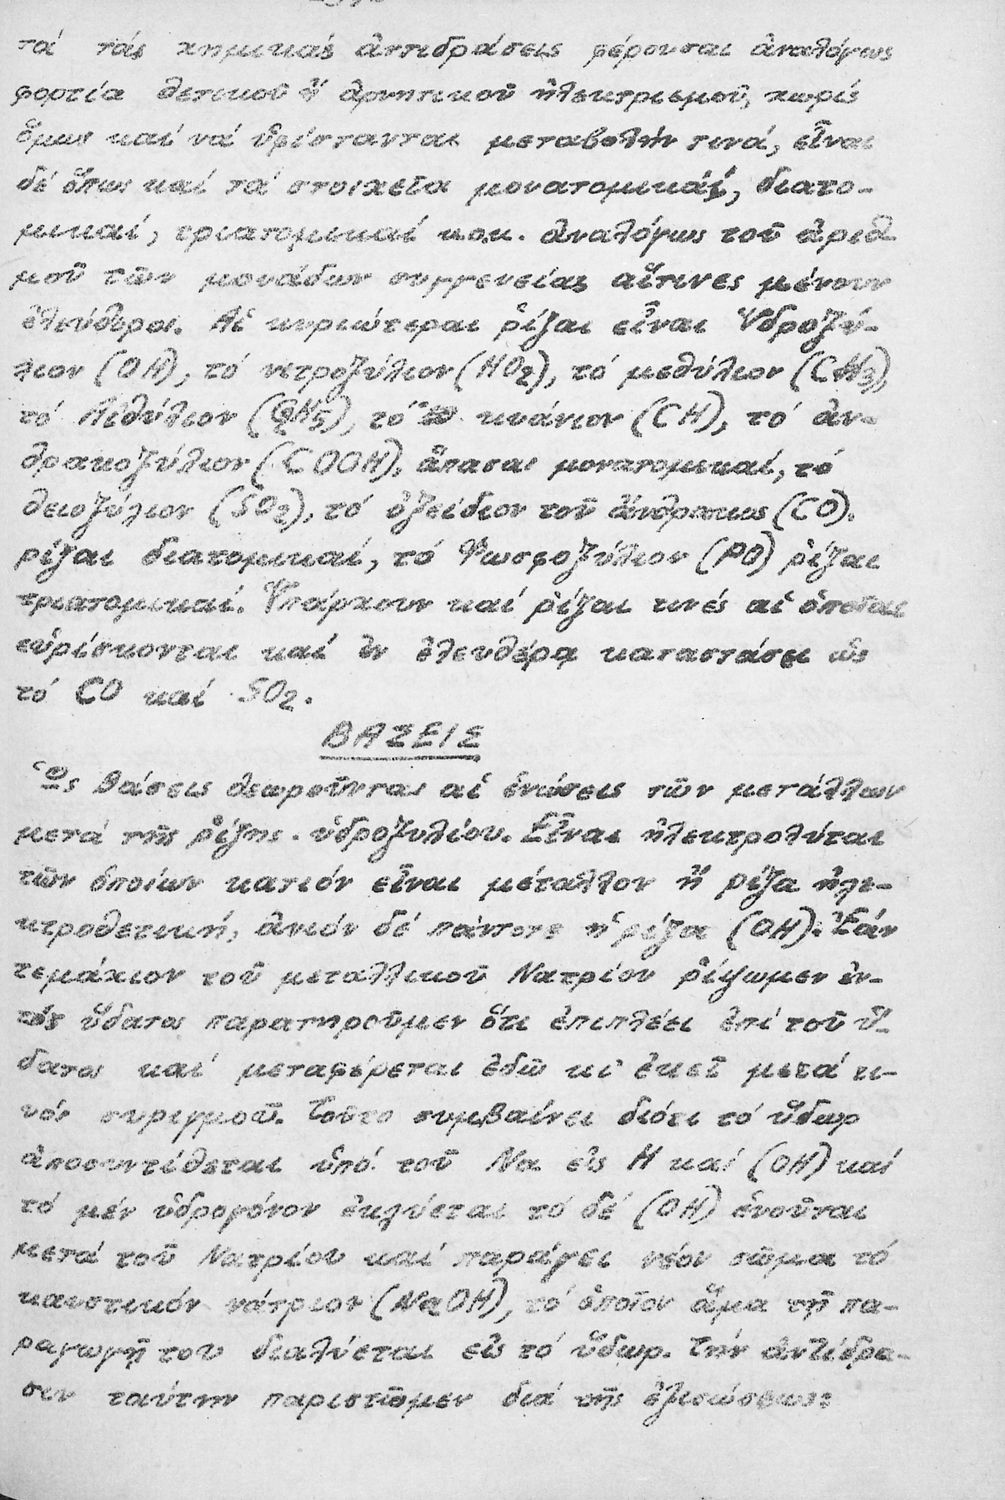 τά τάς χημικάς ἀντιδράσεις φέρονται ἀναλόγως
φορτία θετικοῦ ἤ ἀρνητικοῦ ἠλεκτρισμοῦ, χωρίς
ὅμως καί νά ὑφίστανται μεταβολήν τινά, εἶναι
δέ ὅπως καί τά στοιχεῖα μονατομικαί, διατο-
μικαί, τριατομικαί κ.ο.κ. ἀναλόγως τοῦ ἀριθ
μοῦ τῶν μονάδων συγγενείας αἵτινες μένουν
ἐλεύθεροι. Αἱ κυριώτεραι ρίζαι εἶναι Ὑδροξύ-
λιον (OH), τό νιτροξύλιον (NO2), τό μεθύλιον (CH3),
τό Αἰθύλιον (C2H5), τό κυάνιον (CH), τό ἀν-
θρακοξύλιον (COOH), ἅπασαι μονατομικαί, τό
θειοξύλιον (SO2), τό ὀξείδιον τοῦ ἄνθρακος (CO).
ρίζαι διατομικαί, τό Φωσφοξύλιον (PO) ρίζαι
τριατομικαί. Ὑπάρχουν καί ρίζαι τινές αἱ ὁποῖαι
εὑρίσκονται καί ἐν ἐλευθέρᾳ καταστάσει ὡς
τό CO καί SO2.
ΒΑΣΕΙΣ
Ὡς βάσεις θεωροῦνται αἱ ἑνώσεις τῶν μετάλλων
μετά τῆς ρίζης ὑδροξυλίου. Εἶναι ἠλεκτρολύται
τῶν ὁποίων κατιόν εἶναι μέταλλον ἤ ρίζα ἠλε-
κτροθετική, ἀνιόν δέ πάντοτε ἡ ρίζα (OH). Ἐάν
τεμάχιον τοῦ μεταλλικοῦ Νατρίου ρίψωμεν ἐν-
τός ὕδατος παρατηροῦμεν ὅτι ἐπιπλέει ἐπί τοῦ ὕ-
δατος καί μεταφέρεται ἐδῶ κι' ἐκεῖ μετά τι-
νός συριγμοῦ. Τοῦτο συμβαίνει διότι τό ὕδωρ
ἀποσυντίθεται ὑπό τοῦ Na εἰς H καί (OH) καί
τό μέν ὑδρογόνον ἐκλύεται τό δέ (OH) ἑνοῦται
μετά τοῦ Νατρίου καί παράγει νέον σῶμα τό
καυστικόν νάτριον (NaOH), τό ὁποῖον ἅμα τῇ πα-
ραγωγῇ του διαλύεται εἰς τό ὕδωρ. Τήν ἀντίδρα-
σιν ταύτην παριστῶμεν διά τῆς ἐξισώσεως: